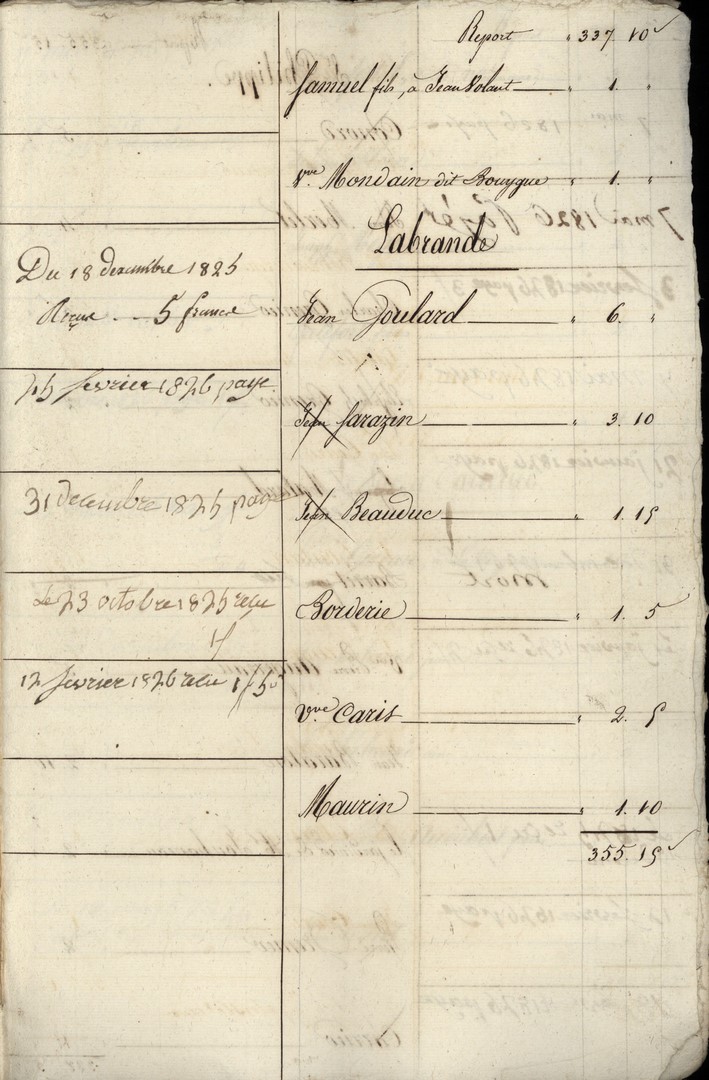 Report " 337. 10
Samuel fils, à Jean Volant " 1. "
Vve Mondain dit Bouygue " 1. "
Labrande
Du 18 decembre 1825
Recue 5 francs
Jean Goulard " 6. "
25 fevrier 1826 paye
Jean Sarazin " 3. 10
31 decembre 1825 paye
Jean Beauduc " 1. 15
Le 23 octobre 1825 recu
1f
Borderie " 1. 5
12 fevrier 1826 recu 1f 50
Vve Caris " 2. 5
Maurin " 1. 10
355. 15